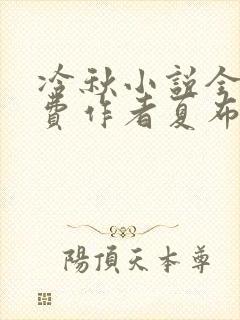 冷秋小説全
費作者夏布
陽頂天本尊